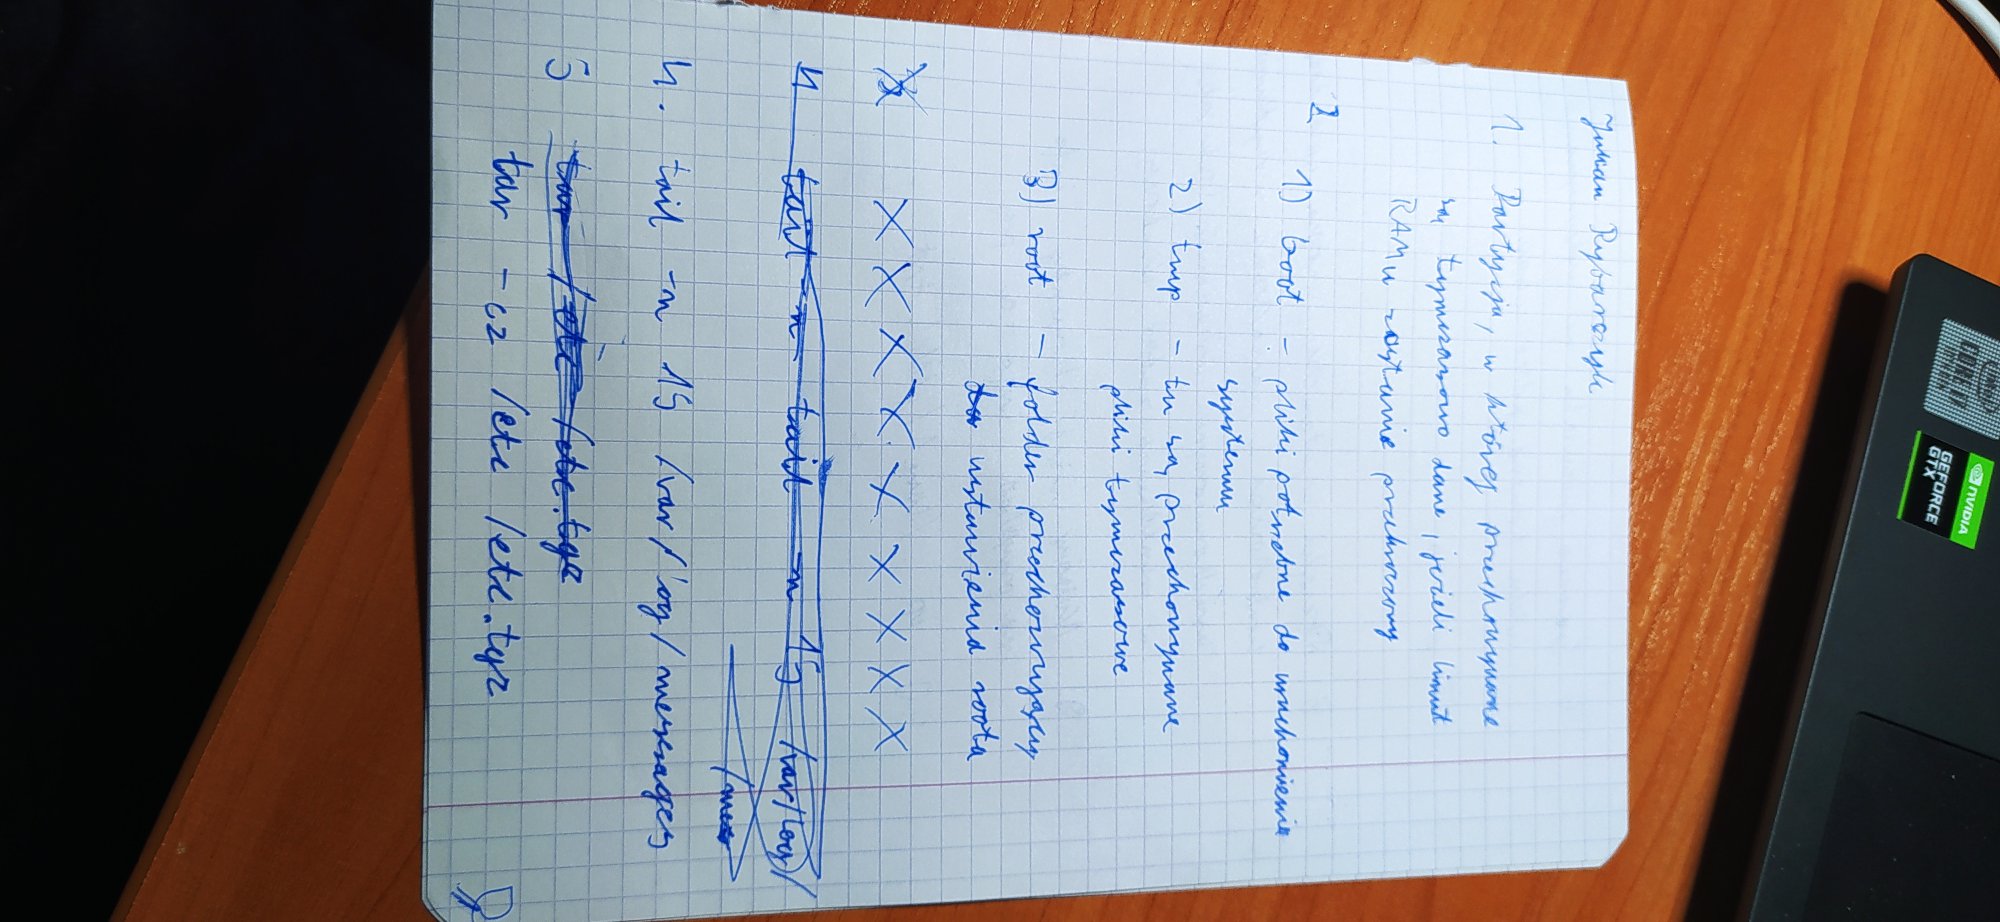 Julian Rybarczyk
1. Partycja, w której przechowywane
są tymczasowo dane, jeżeli limit
RAMu zostanie przekroczony
2 1) boot - pliki potrzebne do uruchomienia
systemu
2) tmp - tu są przechowywane
pliki tymczasowe
3) root - folder przechowujący
ustawienia roota
X X X X X X X X X
4 tail -n 15 /var/log/
/mes
4. tail -n 15 /var/log/messages
5 tar /etc /etc.tgz
tar -cz /etc /etc.tgz
NVIDIA
GEFORCE
GTX